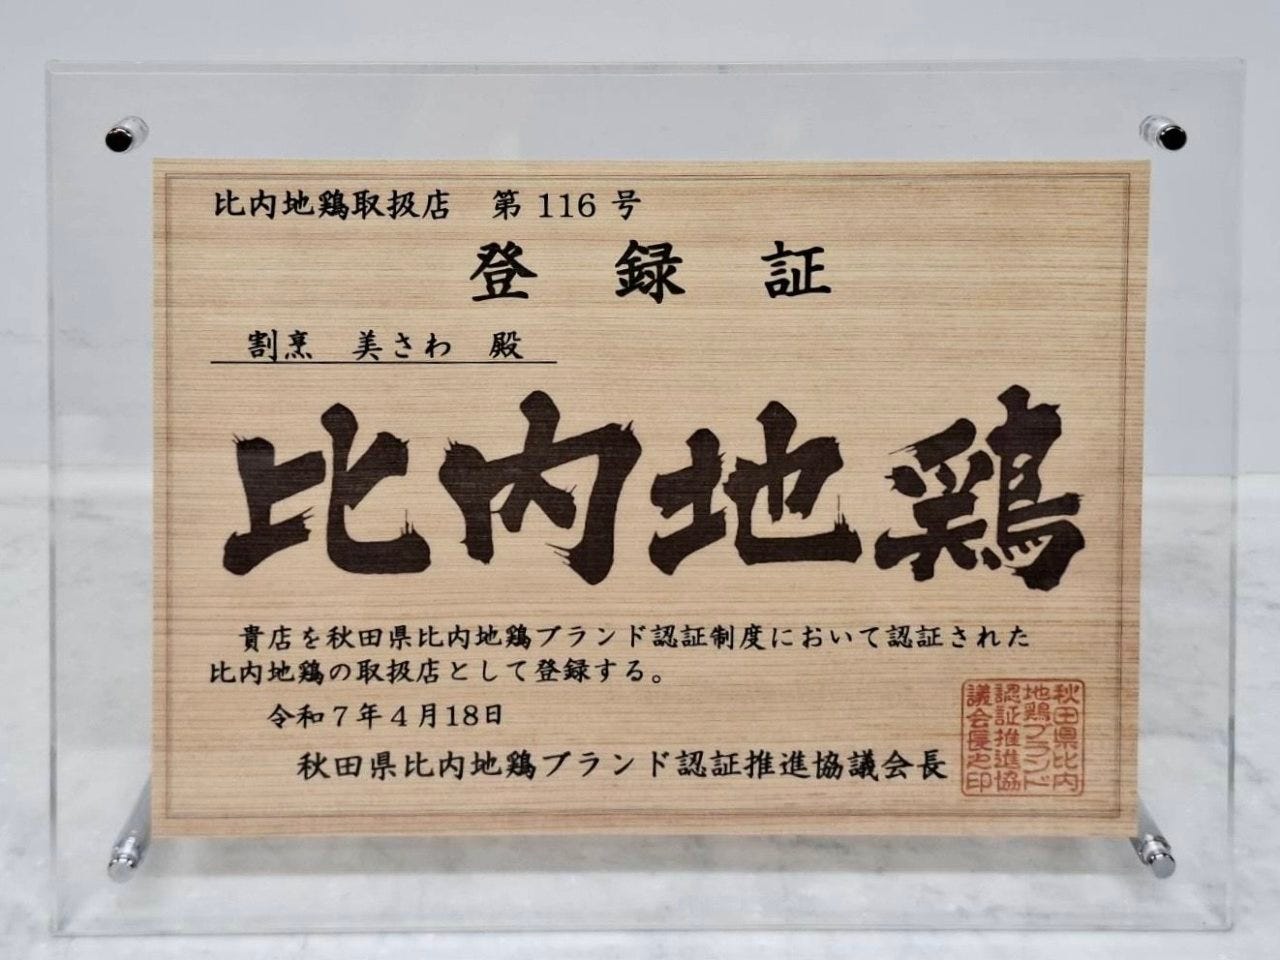 比内地鶏取扱店　第 116 号
登　録　証
割烹　美さわ　殿
比内地鶏
貴店を秋田県比内地鶏ブランド認証制度において認証された
比内地鶏の取扱店として登録する。
令和７年４月18日
秋田県比内地鶏ブランド認証推進協議会長
秋田県比内
地鶏ブランド
認証推進協
議会長之印